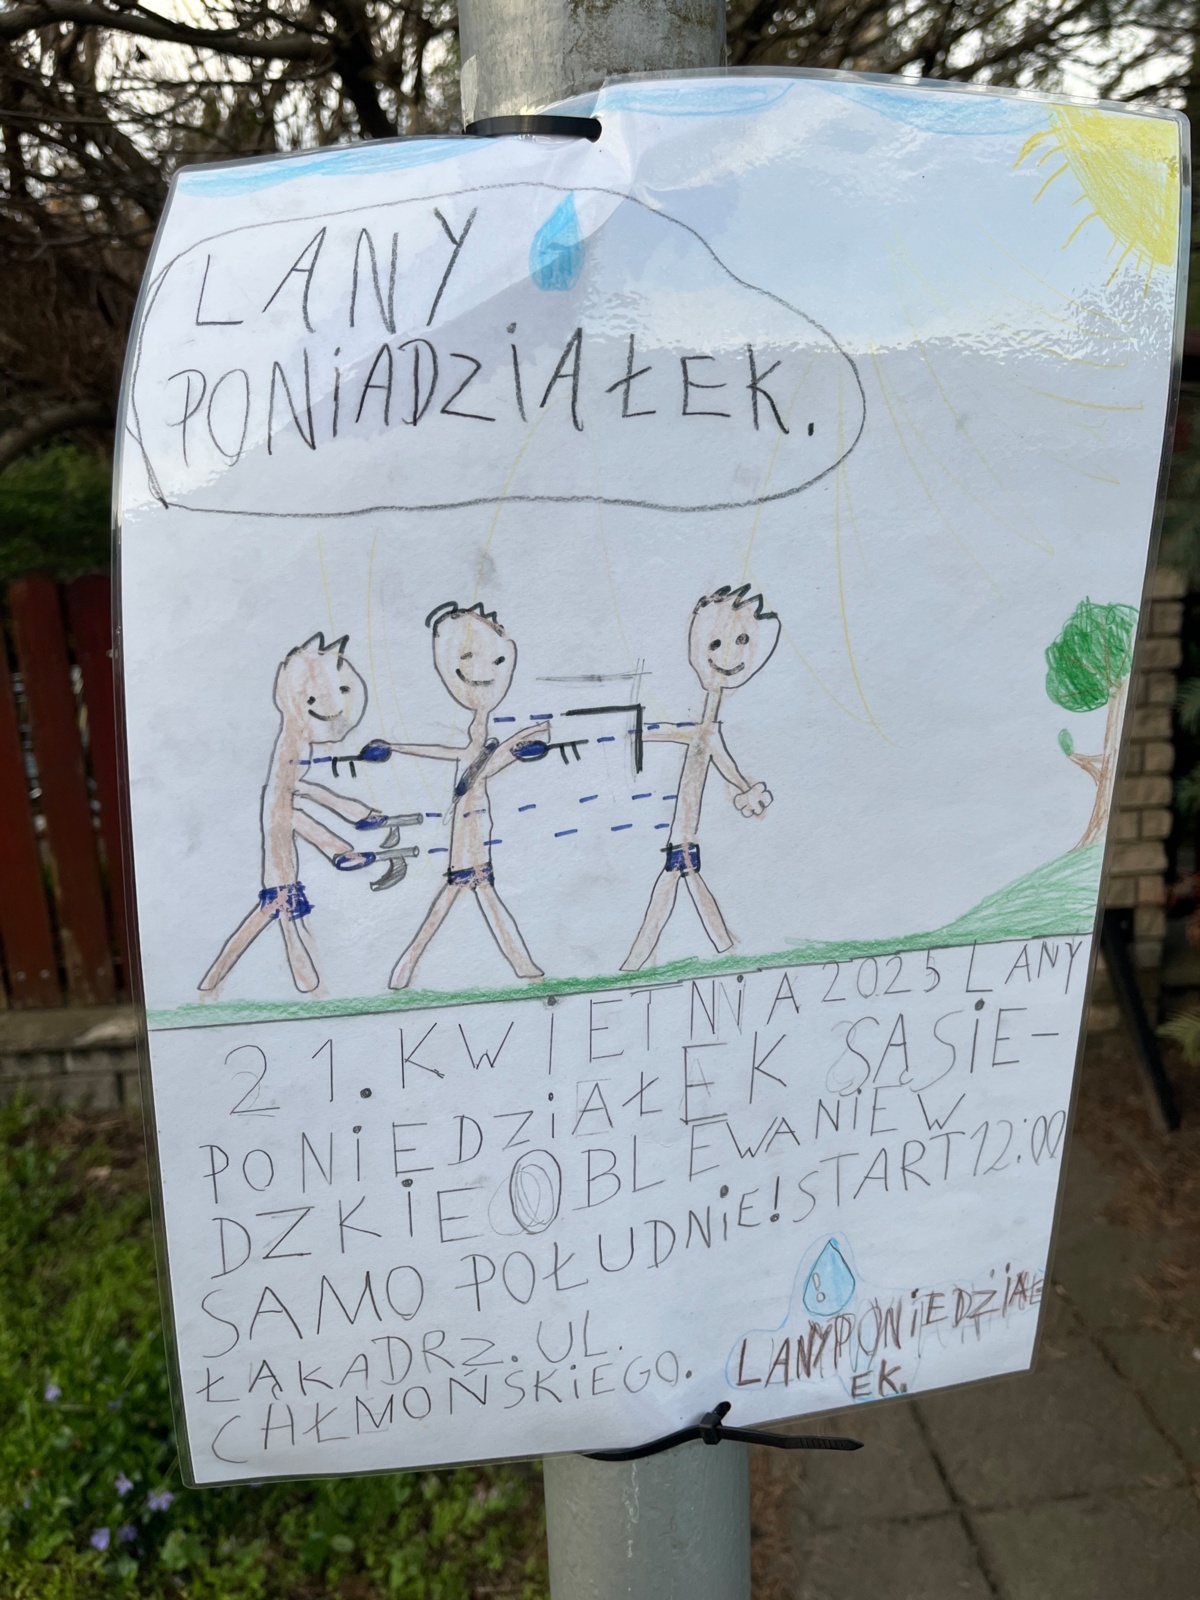 LANY
PONiADZiAŁEK.
21. KWiETNiA 2025 LANY
PONiEDZiAŁEK SĄSiE-
DZKiE OBLEWANiE W
SAMO POŁUDNiE! START 12:00
ŁĄKA DRZ. UL.
CHŁMOŃSKiEGO.
LANY PONiEDZiAŁ
EK.